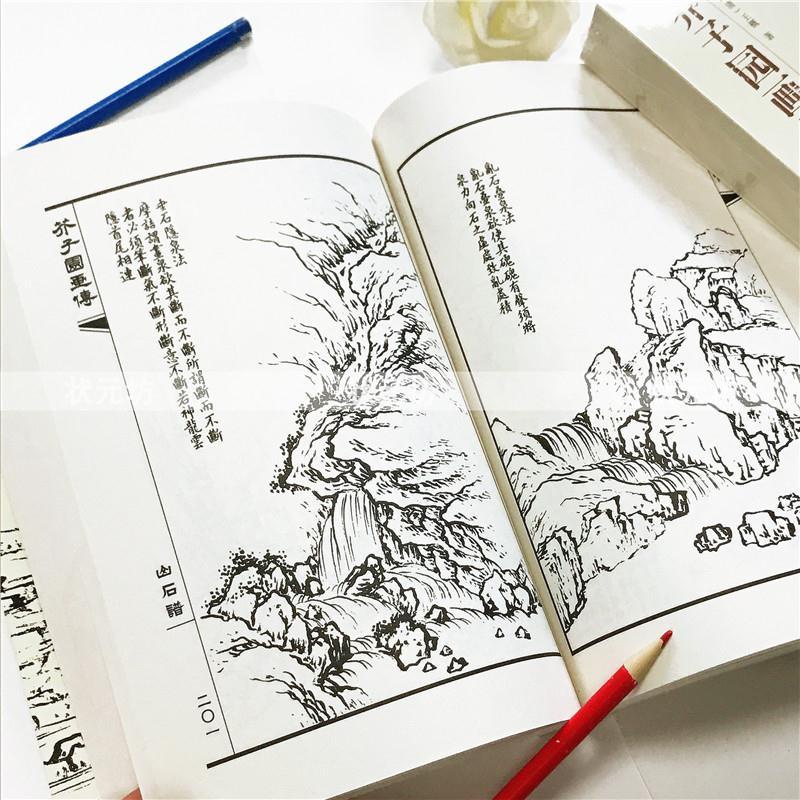 亂石疊泉法
亂石疊泉欲使其有聲須將
泉力向石之虛處致亂處積
垂石隱泉法
摩詰謂畫泉欲其斷而不斷所謂斷而不斷
者必須筆斷氣不斷形斷意不斷若神龍雲
隱首尾相連
芥子園畫傳
山石譜
二〇一
芥子园画
王概
状元坊